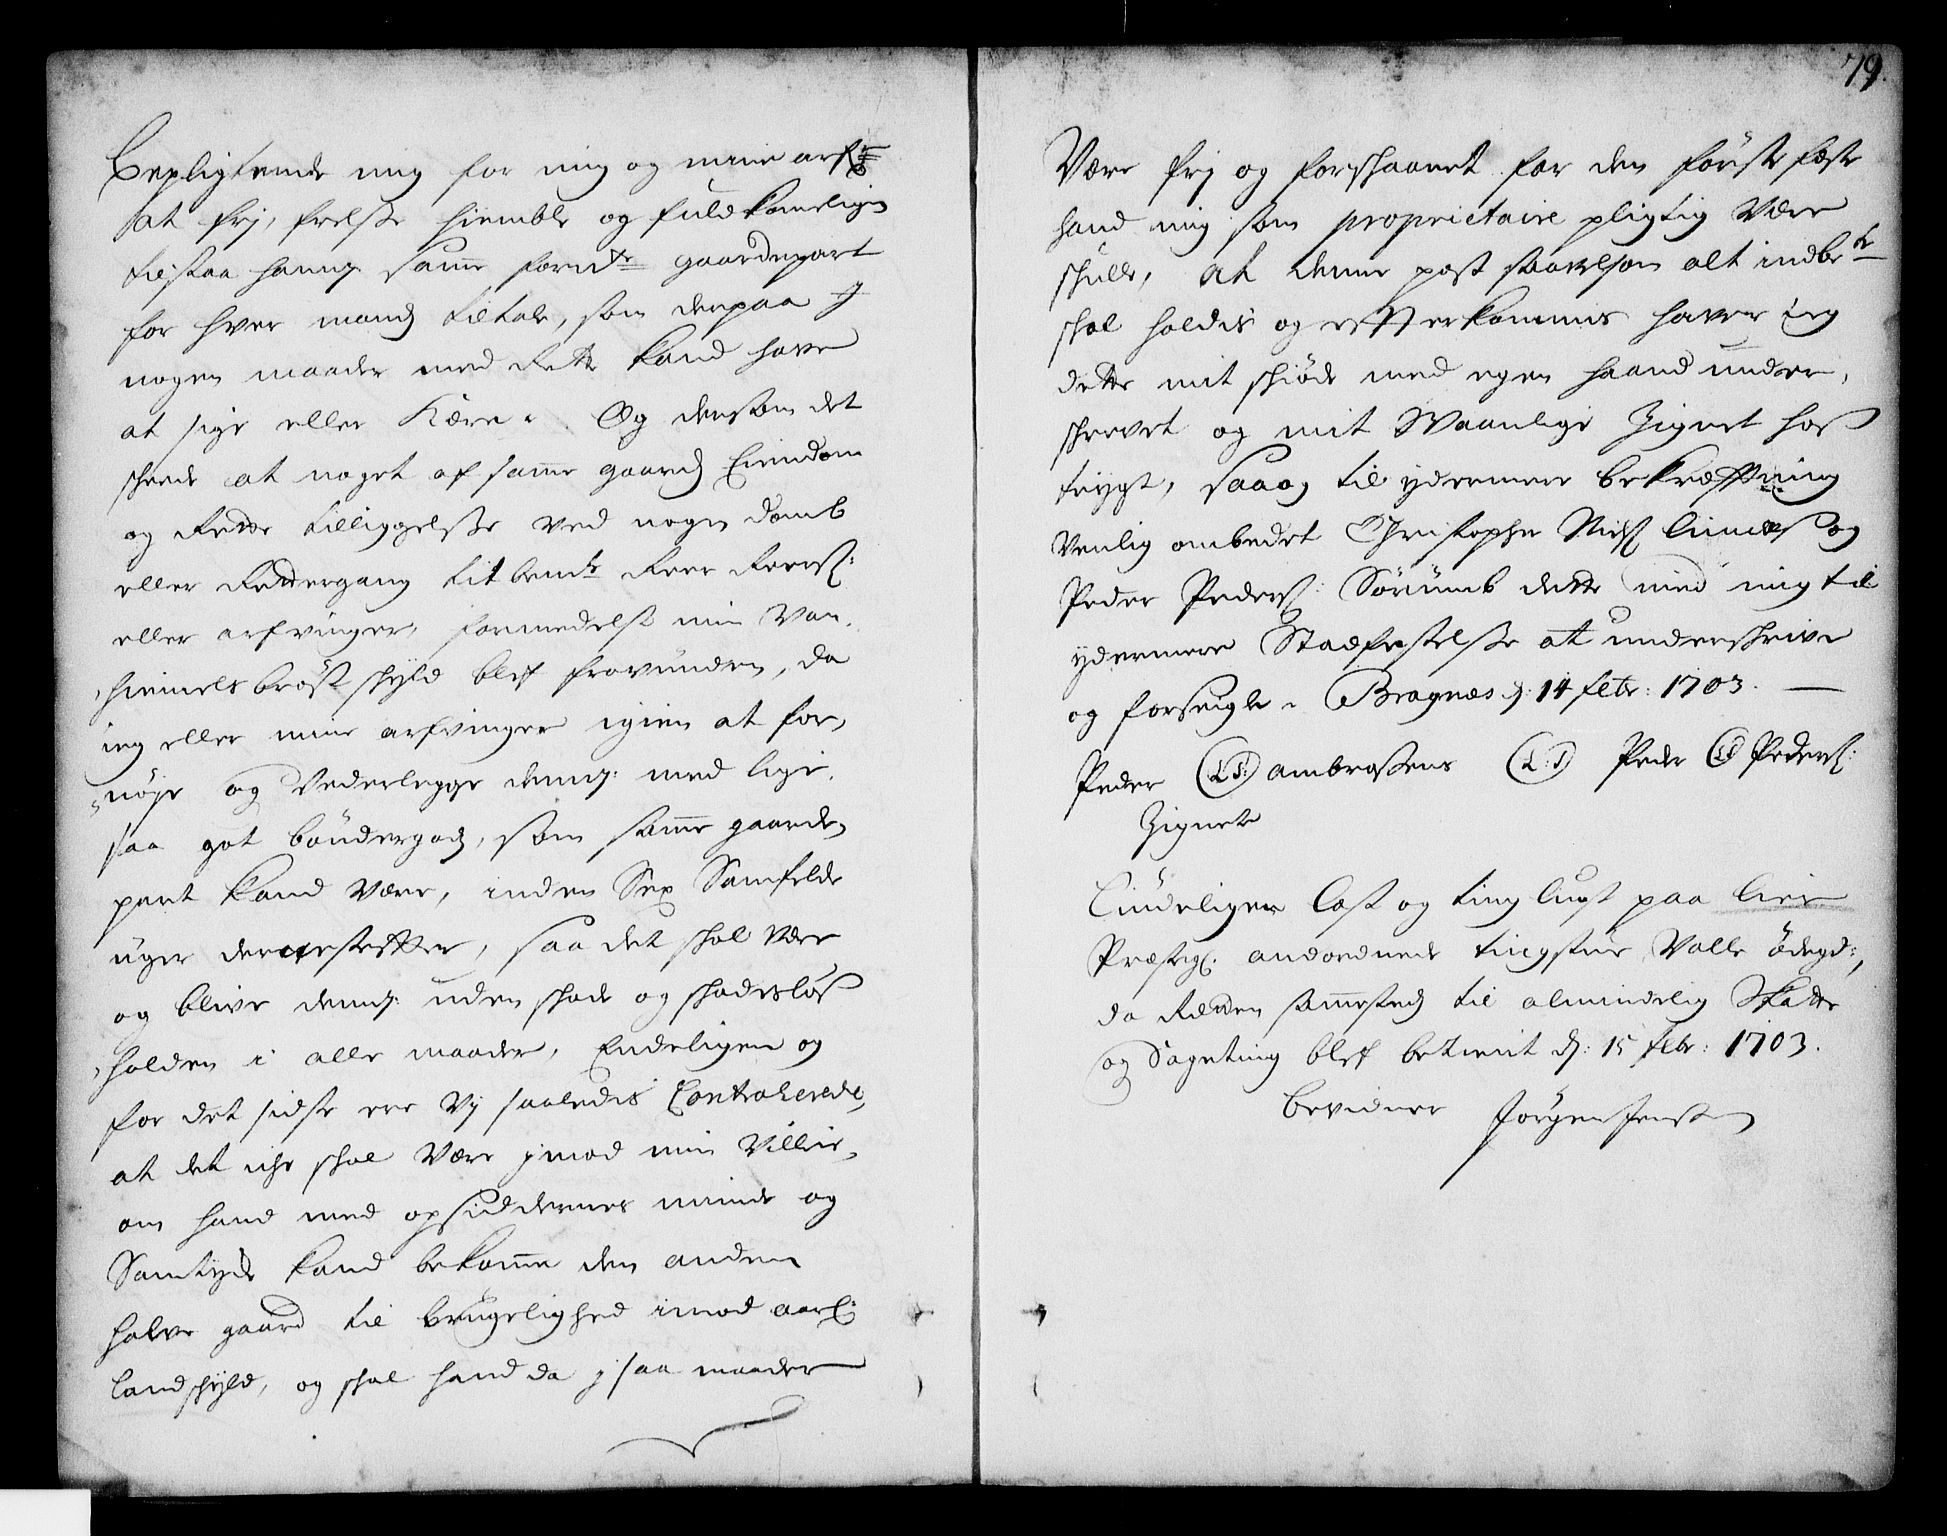 Bepligtende mig for mig og mine arf:
at frj, frelse hiemble og fuldkommeligen
tilstaa hannem samme forn.te gaardepart
for hver mands tiltale, som derpaa j
nogen maader med Rette kand have
at sige eller Kære. Og dersom det
skeede at noget af samme gaards Eiendom
og Rette tilliggelse ved nogen domb
eller Rettergang titbem.te Peer Peers:
eller arfvinger, formedelst min Van-
hiemels bröst skyld blef fravunden, da
ieg eller mine arfvinger igien at for-
nöye og Vederlegge dennem med lige
saa got böndergods, som samme gaarde-
part kand være, inden Sex Samfelde
uger dernestefter, saa det skal være
og blive dennem uden skade og skadeslös
holden i alle maader, Endeligen og
for det sidste ere Vj saaledis Contraherede,
at det iche skal Være jmod min Villie,
om hand med opsiddernes minde og
Samtyche kand bekomme den anden
halve gaard til brugelighed imod aarl:
landskyld, og skal hand da j saa maader
79.
Være frj og forskaanet for den förste feste
hand mig som proprietaire pligtig Være
skulle, At denne post saavelsom alt indbe.te
skal holdis og efterkommis haver ieg
dette mit skiöde med egen haand under-
skrevet og mit Waanlige Zignet hos
trygt, saa og til ydermere bekræftning
Venlig ombedet Christopher Niels: og
Peder Peders: Sörumb dette med mig til
ydermere Stadfestelse at underskrive
og forseigle. Bragnæs d: 14 febr: 1703.
Peder (L.S:) ambrossens (L.S) Peder (LS) Peders:
Zignete
Liudeligen læst og tinglyst paa Lier
Præstegl. anordnede tingstue Valle ödegd:,
da Retten sammesteds til almindelig Skatte
og Sageting blef betient d: 15 febr: 1703.
bevidner Jörgen Jensen